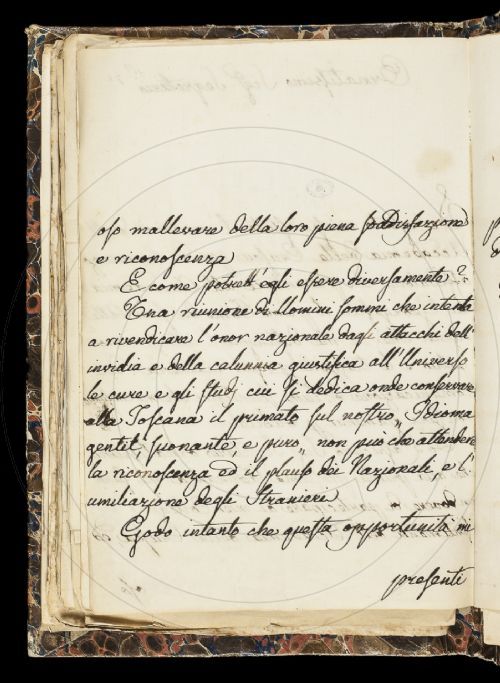 oso mallevare della loro piena soddisfazione
e riconoscenza
E come potrett'egli essere diversamente?
Una riunione di Uomini sommi che intenta
a rivendicare l'onor nazionale dagli attacchi dell'
invidia e della calunnia giustifica all'Universo
le cure e gli studj cui si dedica onde conservare
alla Toscana il primato sul nostro „ Idioma
gentil, suonante, e puro „ non può che attendere
la riconoscenza ed il plauso dei Nazionali, e l'
umiliazione degli Stranieri
Godo intanto che questa opportunità mi
presenti